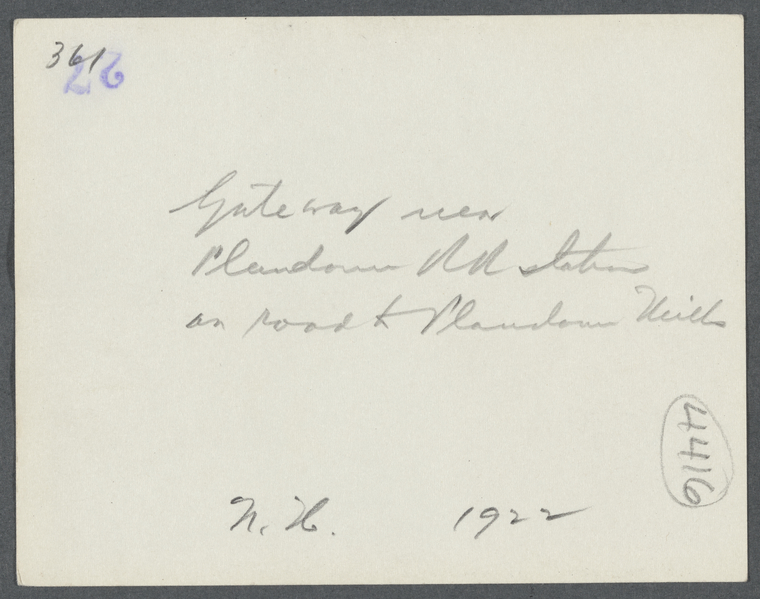 361
27
Gateway near
Plandome RR station
on road to Plandome Mills
4416
N. H. 1922